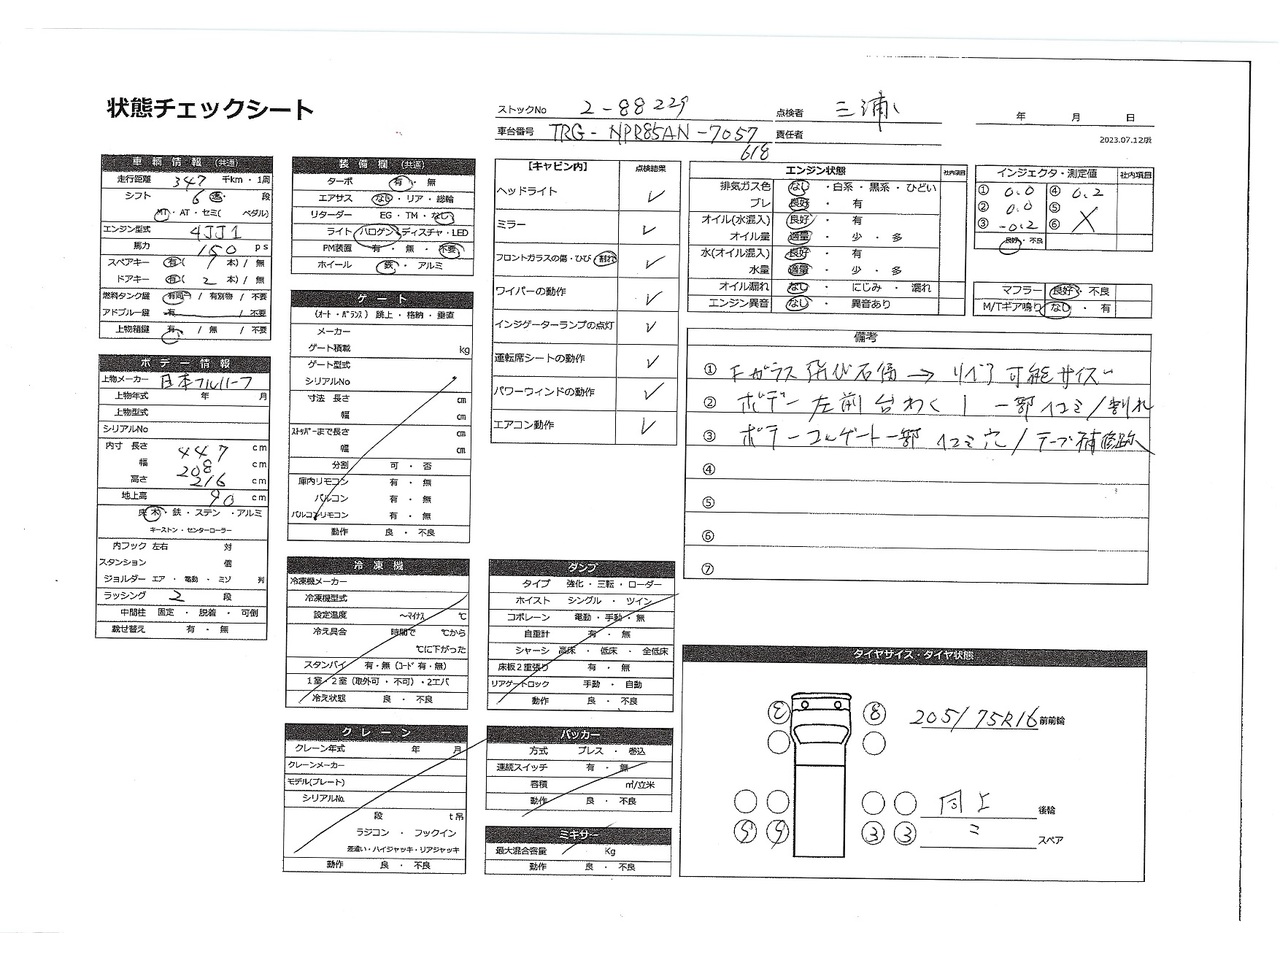 状態チェックシート
ストックNo 2-88229
点検者 三浦
車台番号 TRG-NPR85AN-7057618
責任者
年 月 日
2023.07.12版
車輌情報(共通)
走行距離 347 千km・1周
シフト 6 速・段
MT・AT・セミ( ペダル)
エンジン型式 4JJ1
馬力 150 ps
スペアキー 有( 1 本) / 無
ドアキー 有( 2 本) / 無
燃料タンク鍵 有同一 / 有別物 / 不要
アドブルー鍵 有 / 不要
上物箱鍵 有 / 無 / 不要
ボデー情報
上物メーカー 日本フルハーフ
上物年式 年 月
上物型式
シリアルNo
内寸 長さ 447 cm
幅 208 cm
高さ 216 cm
地上高 90 cm
床 木・鉄・ステン・アルミ
キーストン・センターローラー
内フック 左右 対
スタンション 個
ジョルダー エア・電動・ミゾ 列
ラッシング 2 段
中間柱 固定・脱着・可倒
載せ替え 有・無
装備欄(共通)
ターボ 有・無
エアサス なし・リア・総輪
リターダー EG・TM・なし
ライト ハロゲン・ディスチャ・LED
PM装置 有・無・不要
ホイール 鉄・アルミ
ゲート
(オート・バランス) 跳上・格納・垂直
メーカー
ゲート積載 kg
ゲート型式
シリアルNo
寸法 長さ cm
幅 cm
ストッパーまで長さ cm
幅 cm
分割 可・否
庫内リモコン 有・無
バルコン 有・無
バルコンリモコン 有・無
動作 良・不良
冷凍機
冷凍機メーカー
冷凍機型式
設定温度 ～マイナス ℃
冷え具合 時間で ℃から
℃に下がった
スタンバイ 有・無(コード 有・無)
1室・2室(取外可・不可)・2エバ
冷え状態 良・不良
クレーン
クレーン年式 年 月
クレーンメーカー
モデル(プレート)
シリアルNo.
段 t吊
ラジコン・フックイン
差違い・ハイジャッキ・リアジャッキ
動作 良・不良
【キャビン内】 点検結果
ヘッドライト ✓
ミラー ✓
フロントガラスの傷・ひび・割れ ✓
ワイパーの動作 ✓
インジゲーターランプの点灯 ✓
運転席シートの動作 ✓
パワーウィンドの動作 ✓
エアコン動作 ✓
ダンプ
タイプ 強化・三転・ローダー
ホイスト シングル・ツイン
コボレーン 電動・手動・無
自重計 有・無
シャーシ 高床・低床・全低床
床板2重張り 有・無
リアゲートロック 手動・自動
動作 良・不良
パッカー
方式 プレス・巻込
連続スイッチ 有・無
容積 ㎥/立米
動作 良・不良
ミキサー
最大混合容量 Kg
動作 良・不良
エンジン状態 社内項目
排気ガス色 なし・白系・黒系・ひどい
ブレ 良好・有
オイル(水混入) 良好・有
オイル量 適量・少・多
水(オイル混入) 良好・有
水量 適量・少・多
オイル漏れ なし・にじみ・漏れ
エンジン異音 なし・異音あり
インジェクタ・測定値 社内項目
① 0.0 ④ 0.2
② 0.0 ⑤
③ -0.2 ⑥
良好・不良
マフラー 良好・不良
M/Tギア鳴り なし・有
備考
① Fガラス 飛び石傷 → リペア可能サイズ
② ボデー 左前 台わく 一部 凹ミ/割れ
③ ボデーコルゲート一部 凹ミ穴/テープ補修跡
④
⑤
⑥
⑦
タイヤサイズ・タイヤ状態
8 205/75R16 前前輪
同上 後輪
9 3 3 ミ スペア